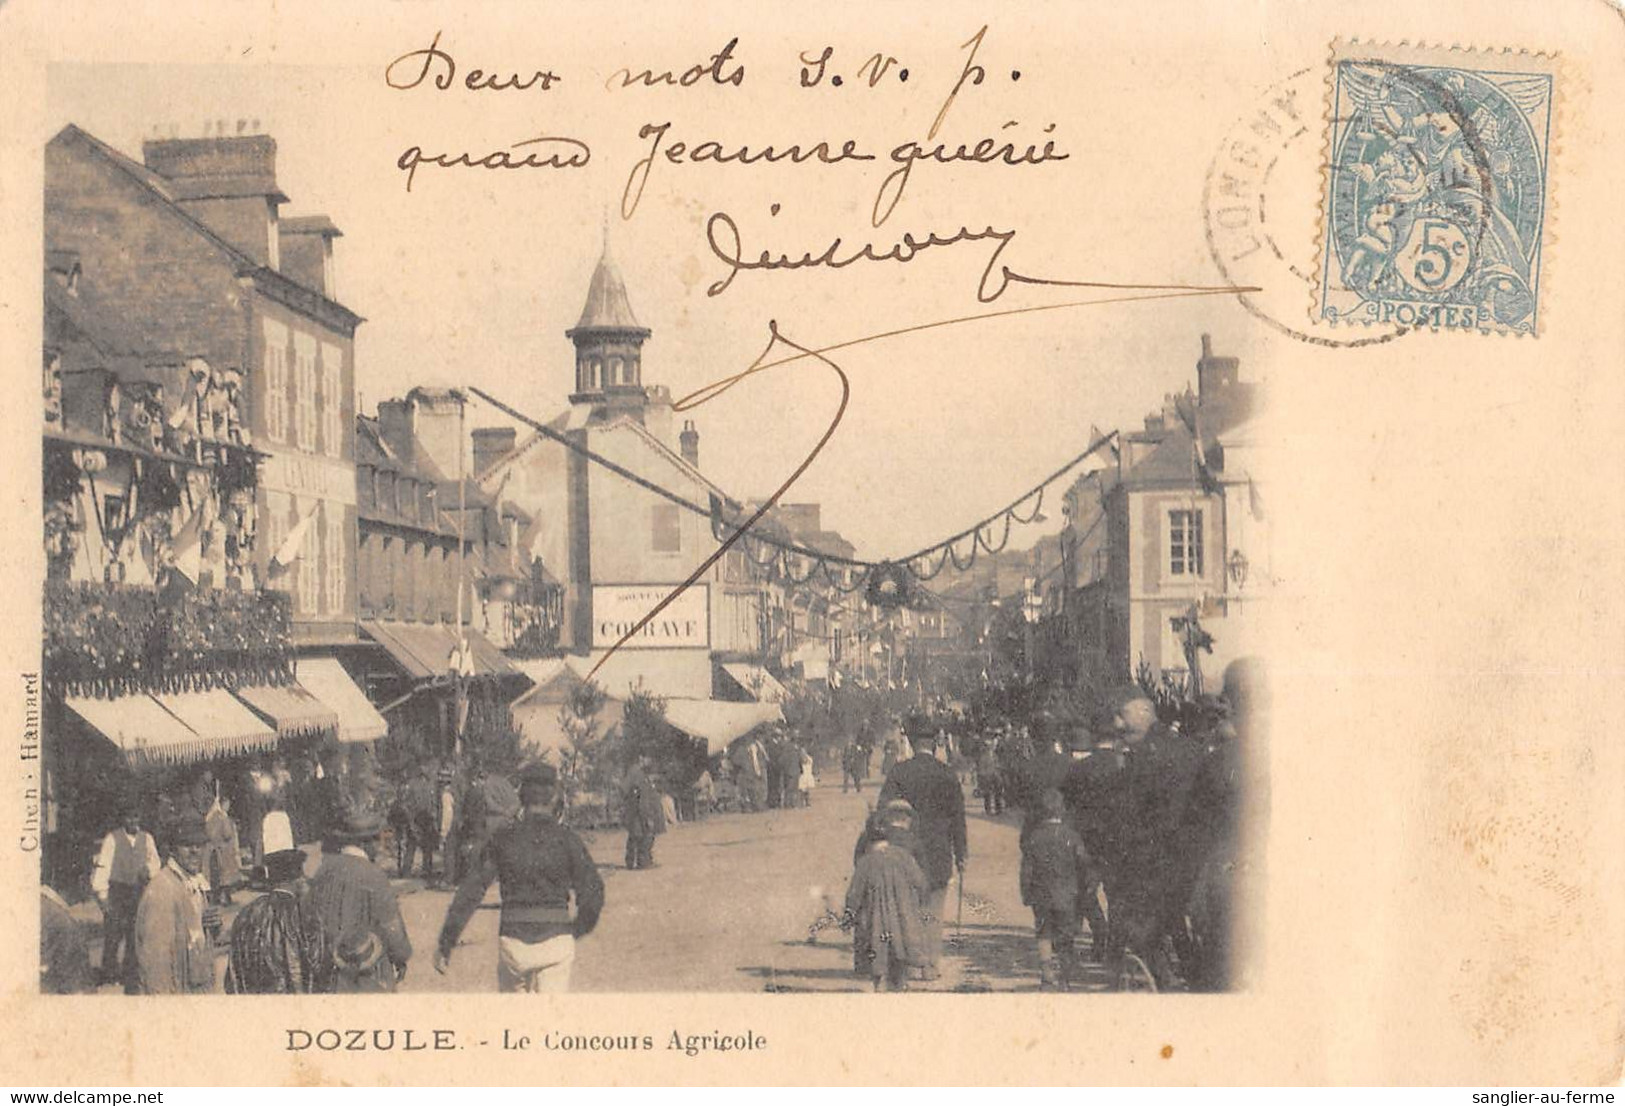 Deux mots S. v. p.
quand Jeanne guérie
LONGNY
5c
POSTES
COURAYE
Clich. Hamard
DOZULE. - Le Concours Agricole
www.delcampe.net
sanglier-au-ferme